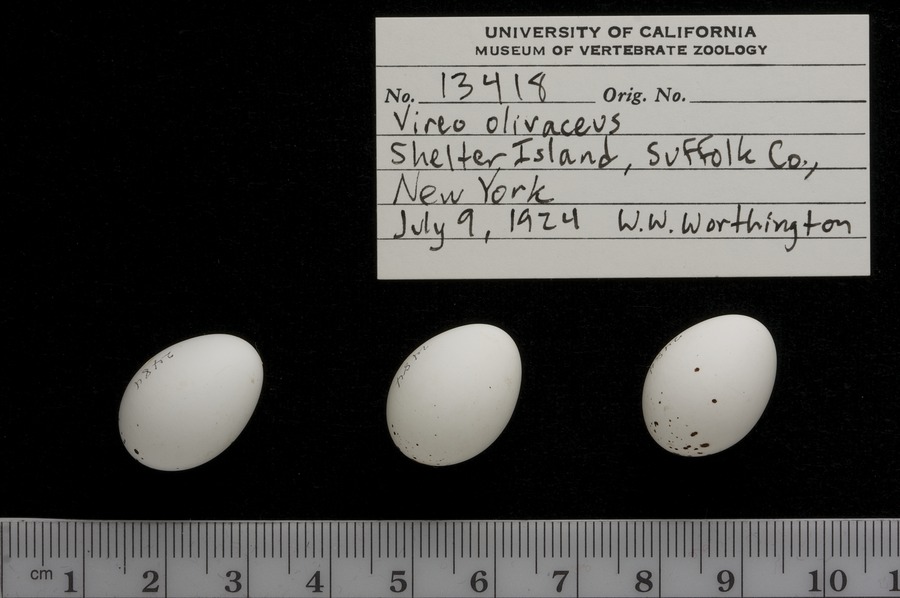 UNIVERSITY OF CALIFORNIA
MUSEUM OF VERTEBRATE ZOOLOGY
No. 13418 Orig. No.
Vireo olivaceus
Shelter Island, Suffolk Co.,
New York
July 9, 1924 W.W. Worthington
cm 1 2 3 4 5 6 7 8 9 10 1